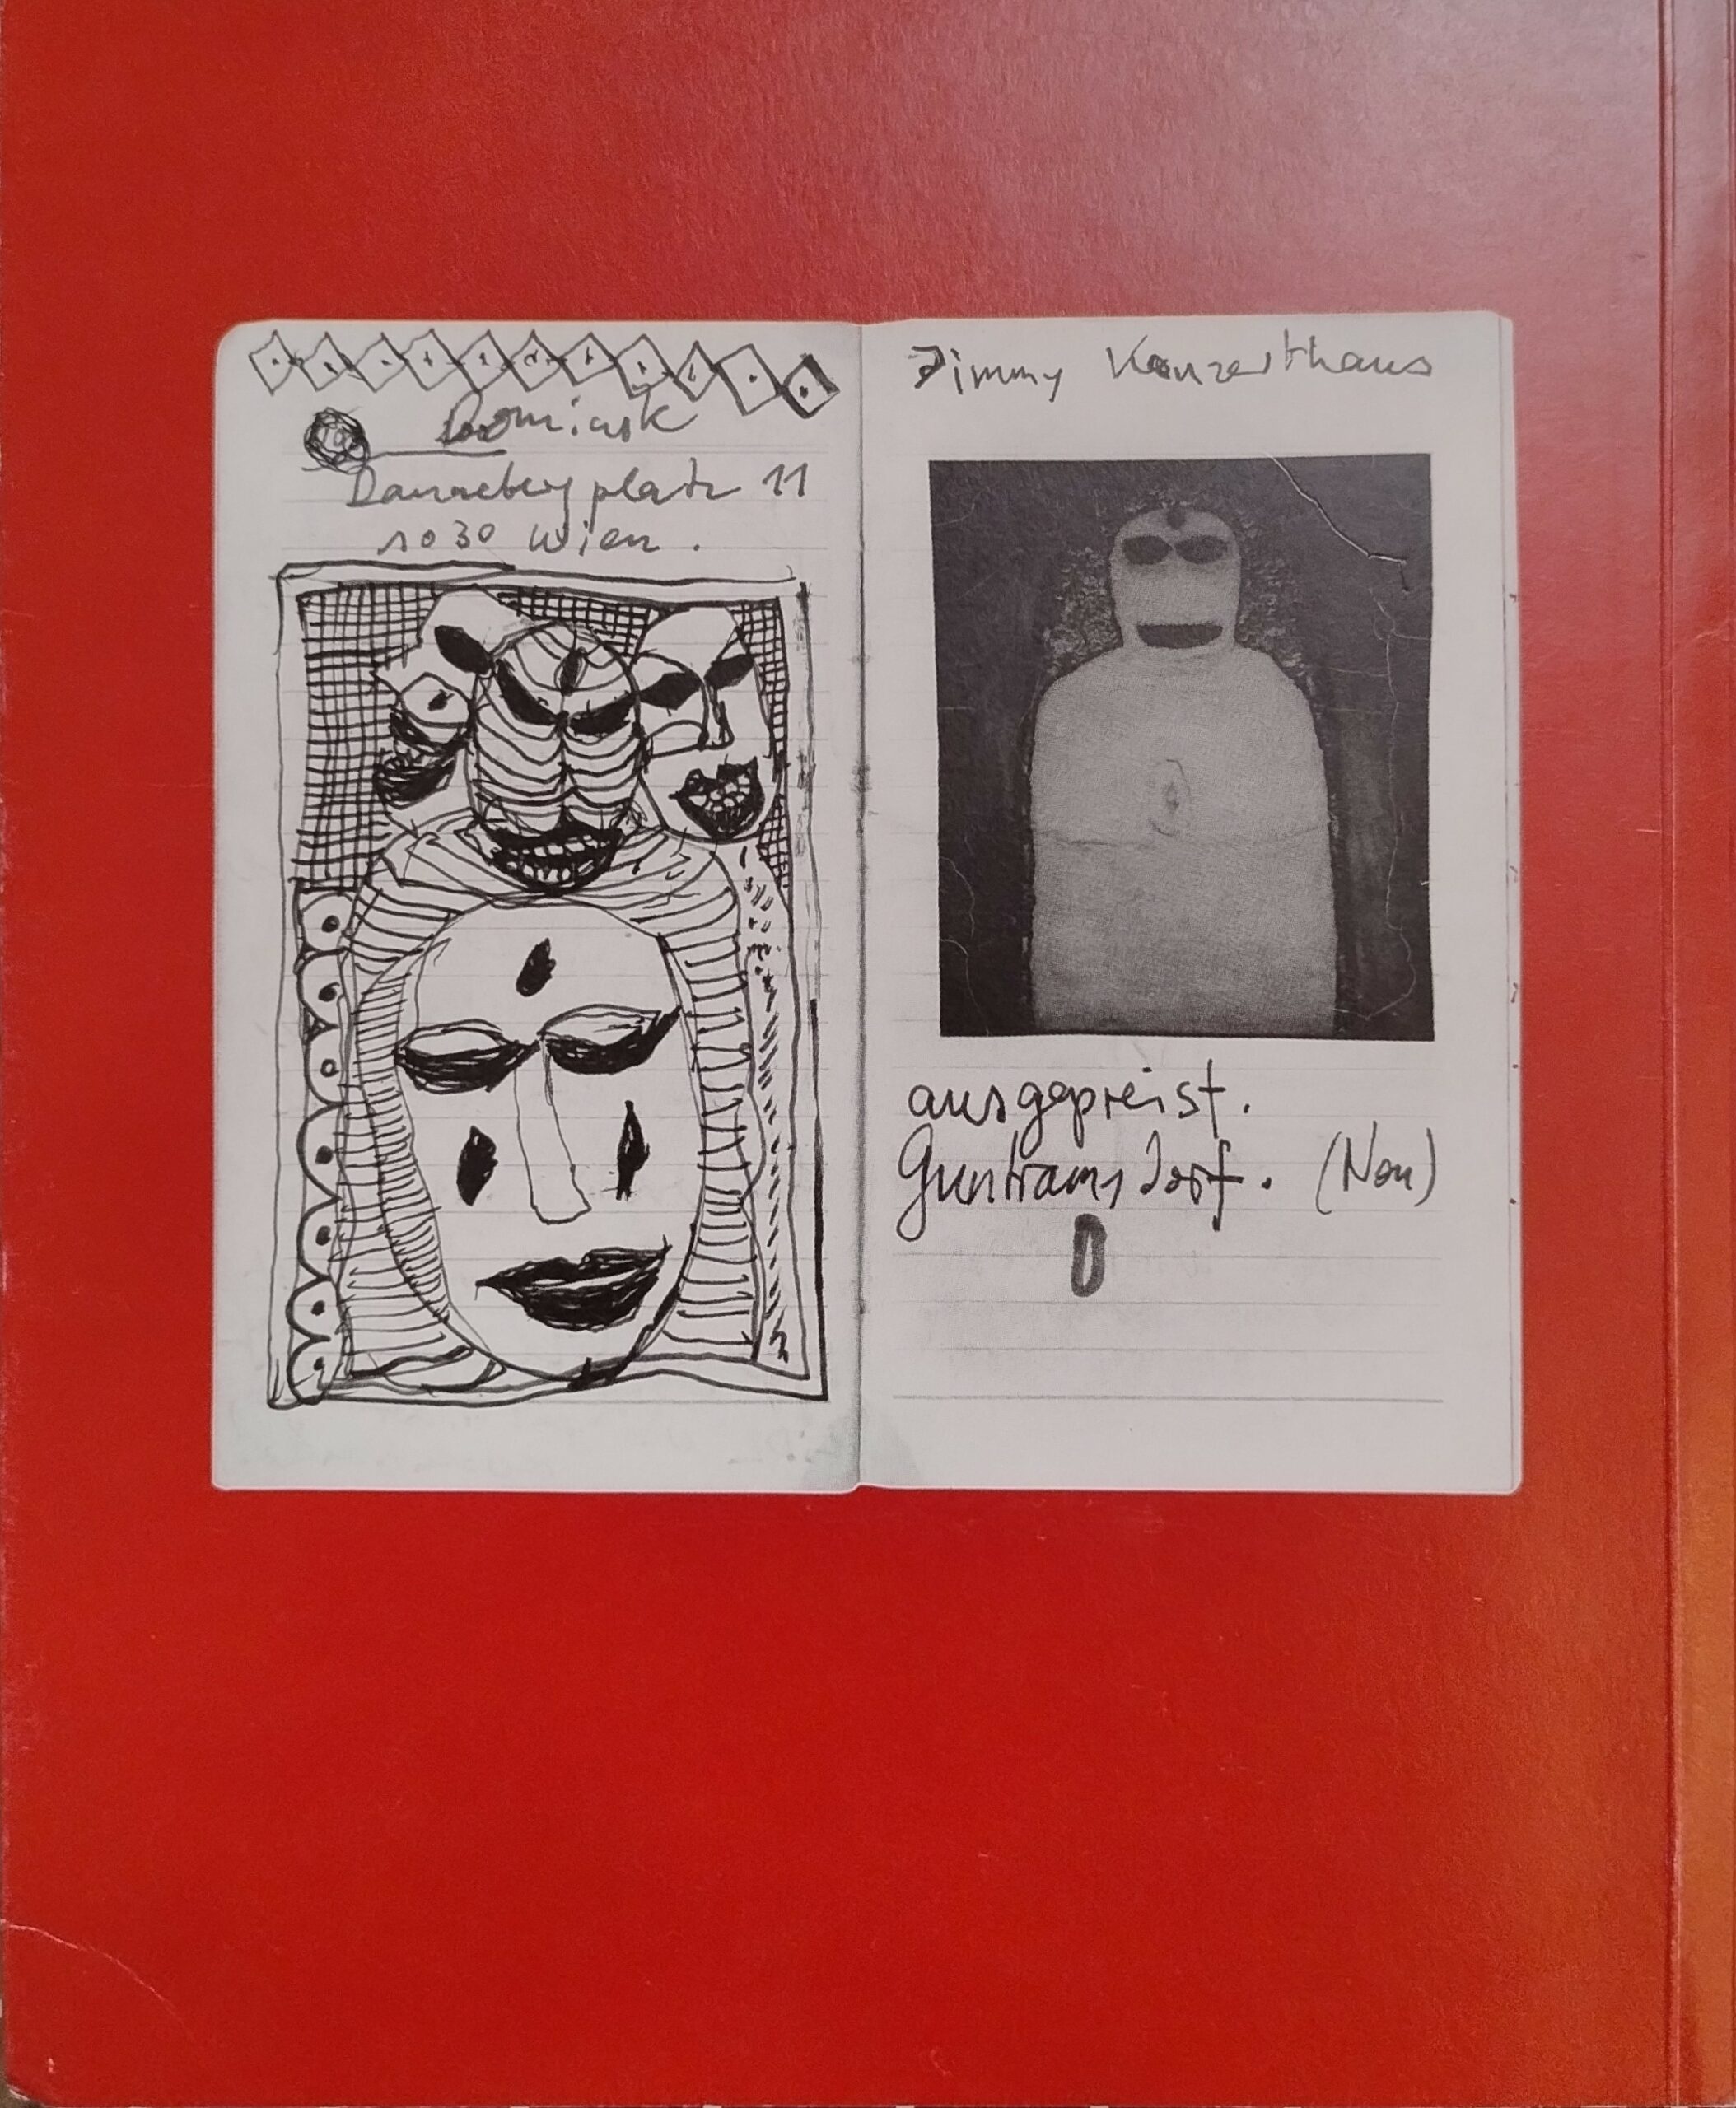 Dominik
Dannebergplatz 11
1030 Wien.
Jimmy Konzerthaus
ausgepreist.
Guntramsdorf. (Neu)